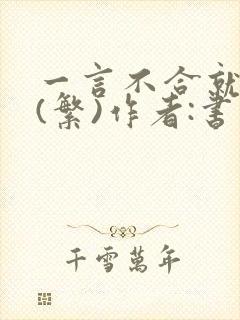 一言不合就
(繁)作者:書
千雪萬年